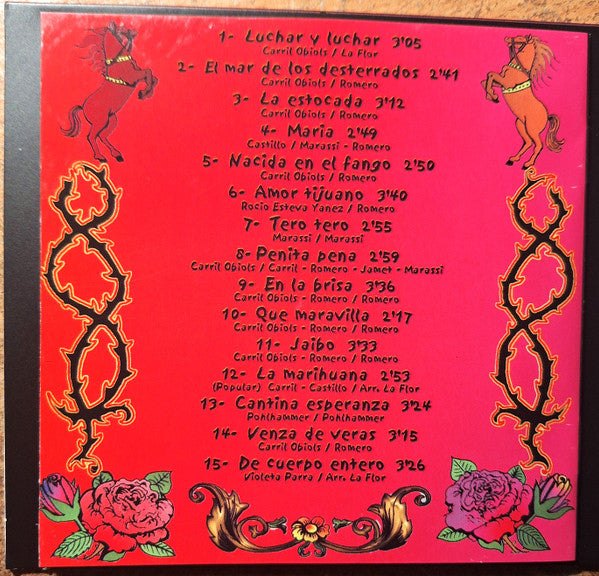 1- Luchar y luchar 3'05
Carril Obiols / La Flor
2- El mar de los desterrados 2'41
Carril Obiols / Romero
3- La estocada 3'12
Carril Obiols / Romero
4- Maria 2'49
Castillo / Marassi - Romero
5- Nacida en el fango 2'50
Carril Obiols / Romero
6- Amor tijuano 3'40
Rocio Esteva Yanez / Romero
7- Tero tero 2'55
Marassi / Marassi
8- Penita pena 2'59
Carril Obiols / Carril - Romero - Jamet - Marassi
9- En la brisa 3'36
Carril Obiols - Romero / Romero
10- Que maravilla 2'17
Carril Obiols - Romero / Romero
11- Jaibo 3'33
Carril Obiols - Romero / Romero
12- La marihuana 2'53
(Popular) Carril - Castillo / Arr. La Flor
13- Cantina esperanza 3'24
Pohlhammer / Pohlhammer
14- Venza de veras 3'15
Carril Obiols / Romero
15- De cuerpo entero 3'26
Violeta Parra / Arr. La Flor